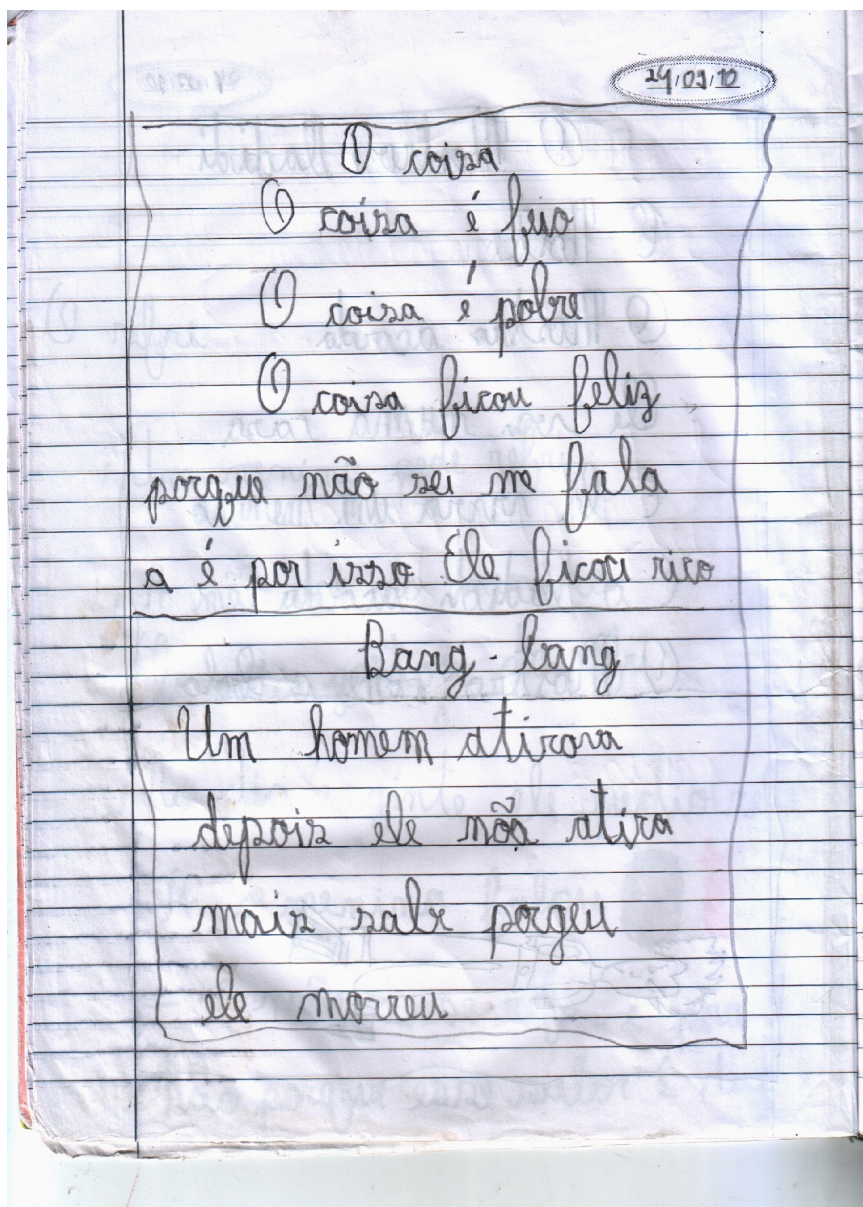 29/09/10
O coisa
O coisa é feio
O coisa é pobre
O coisa ficou feliz
porque não sei me fala
a é por isso Ele ficou rico
Bang-bang
Um homem atirava
depois ele não atira
mais sabe porgeu
ele morreu